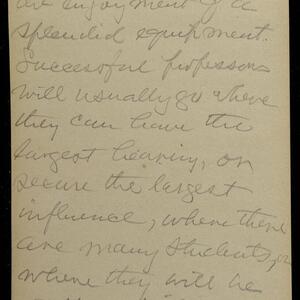 are enjoyment of a
splendid equipment.
Successful professors
will usually go where
they can have the
largest hearing, or
secure the largest
influence, where there
are many students, or
where they will be